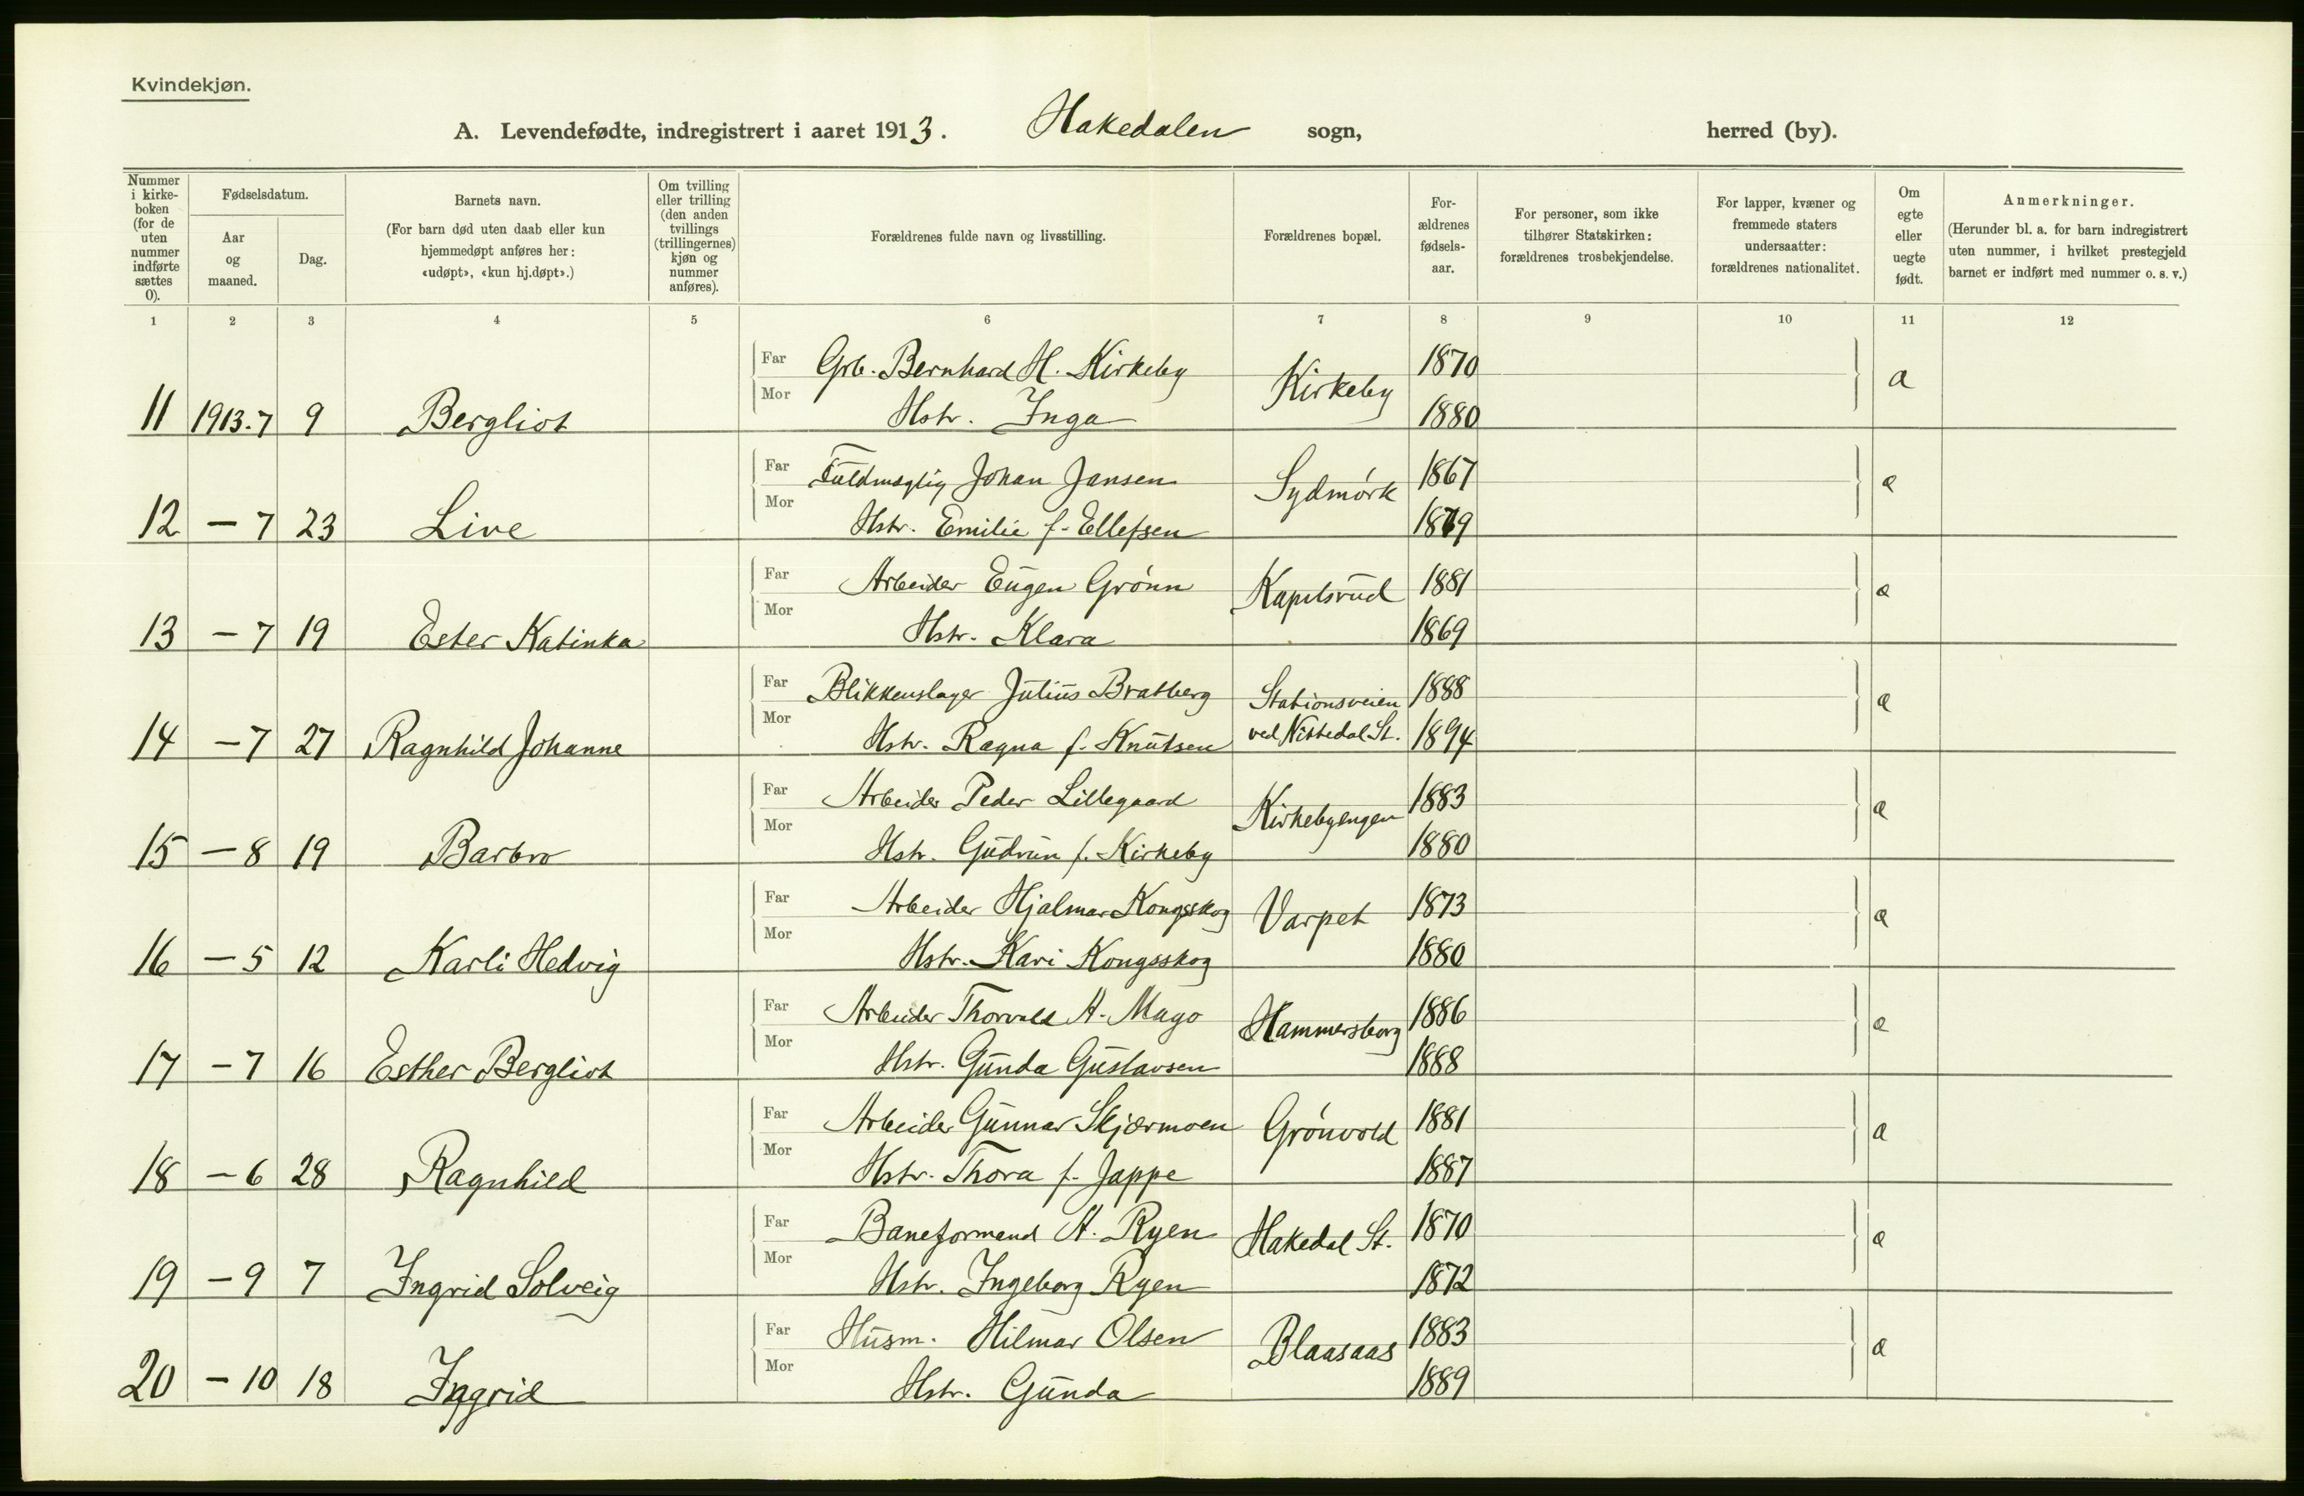 Kvindekjøn.
A. Levendefødte, indregistrert i aaret 1913. Hakedalen sogn, herred (by).
Nummer i kirke-boken (for de uten nummer indførte sættes 0).
Fødselsdatum.
Aar og maaned.
Dag.
Barnets navn.
(For barn død uten daab eller kun hjemmedøpt anføres her: «udøpt», «kun hj.døpt».)
Om tvilling eller trilling (den anden tvillings (trillingernes) kjøn og nummer anføres).
Forældrenes fulde navn og livsstilling.
Forældrenes bopæl.
For-ældrenes fødsels-aar.
For personer, som ikke tilhører Statskirken: forældrenes trosbekjendelse.
For lapper, kvæner og fremmede staters undersaatter: forældrenes nationalitet.
Om egte eller uegte født.
Anmerkninger.
(Herunder bl. a. for barn indregistrert uten nummer, i hvilket prestegjeld barnet er indført med nummer o. s. v.)
1 2 3 4 5 6 7 8 9 10 11 12
Far Grb. Bernhard H. Kirkeby Kirkeby 1870 a
11 1913.7 9 Bergliot Mor Hstr. Inga 1880
Far Fuldmægtig Johan Jansen Sydmørk 1867 a
12 – 7 23 Live Mor Hstr. Emilie f. Ellefsen 1879
Far Arbeider Eugen Grønn Kapelsrud 1881 a
13 – 7 19 Ester Katinka Mor Hstr. Klara 1869
Far Blikkenslager Julius Bratberg Stationsveien 1888 a
14 – 7 27 Ragnhild Johanne Mor Hstr. Ragna f. Knutsen ved Nittedal St. 1894
Far Arbeider Peder Lillegaard Kirkebyengen 1883 a
15 – 8 19 Barbro Mor Hstr. Gudrun f. Kirkeby 1880
Far Arbeider Hjalmar Kongsskog Varpet 1873 a
16 – 5 12 Karli Hedvig Mor Hstr. Kari Kongsskog 1880
Far Arbeider Thorvald A. Mago Hammersborg 1886 a
17 – 7 16 Esther Bergliot Mor Hstr. Gunda Gustavsen 1888
Far Arbeider Gunnar Skjærmoen Grønvold 1881 a
18 – 6 28 Ragnhild Mor Hstr. Thora f. Jappe 1887
Far Baneformand A. Ryen Hakedal St. 1870 a
19 – 9 7 Ingrid Solveig Mor Hstr. Ingeborg Ryen 1872
Far Husm. Hilmar Olsen Blaasaas 1883 a
20 – 10 18 Ingrid Mor Hstr. Gunda 1889